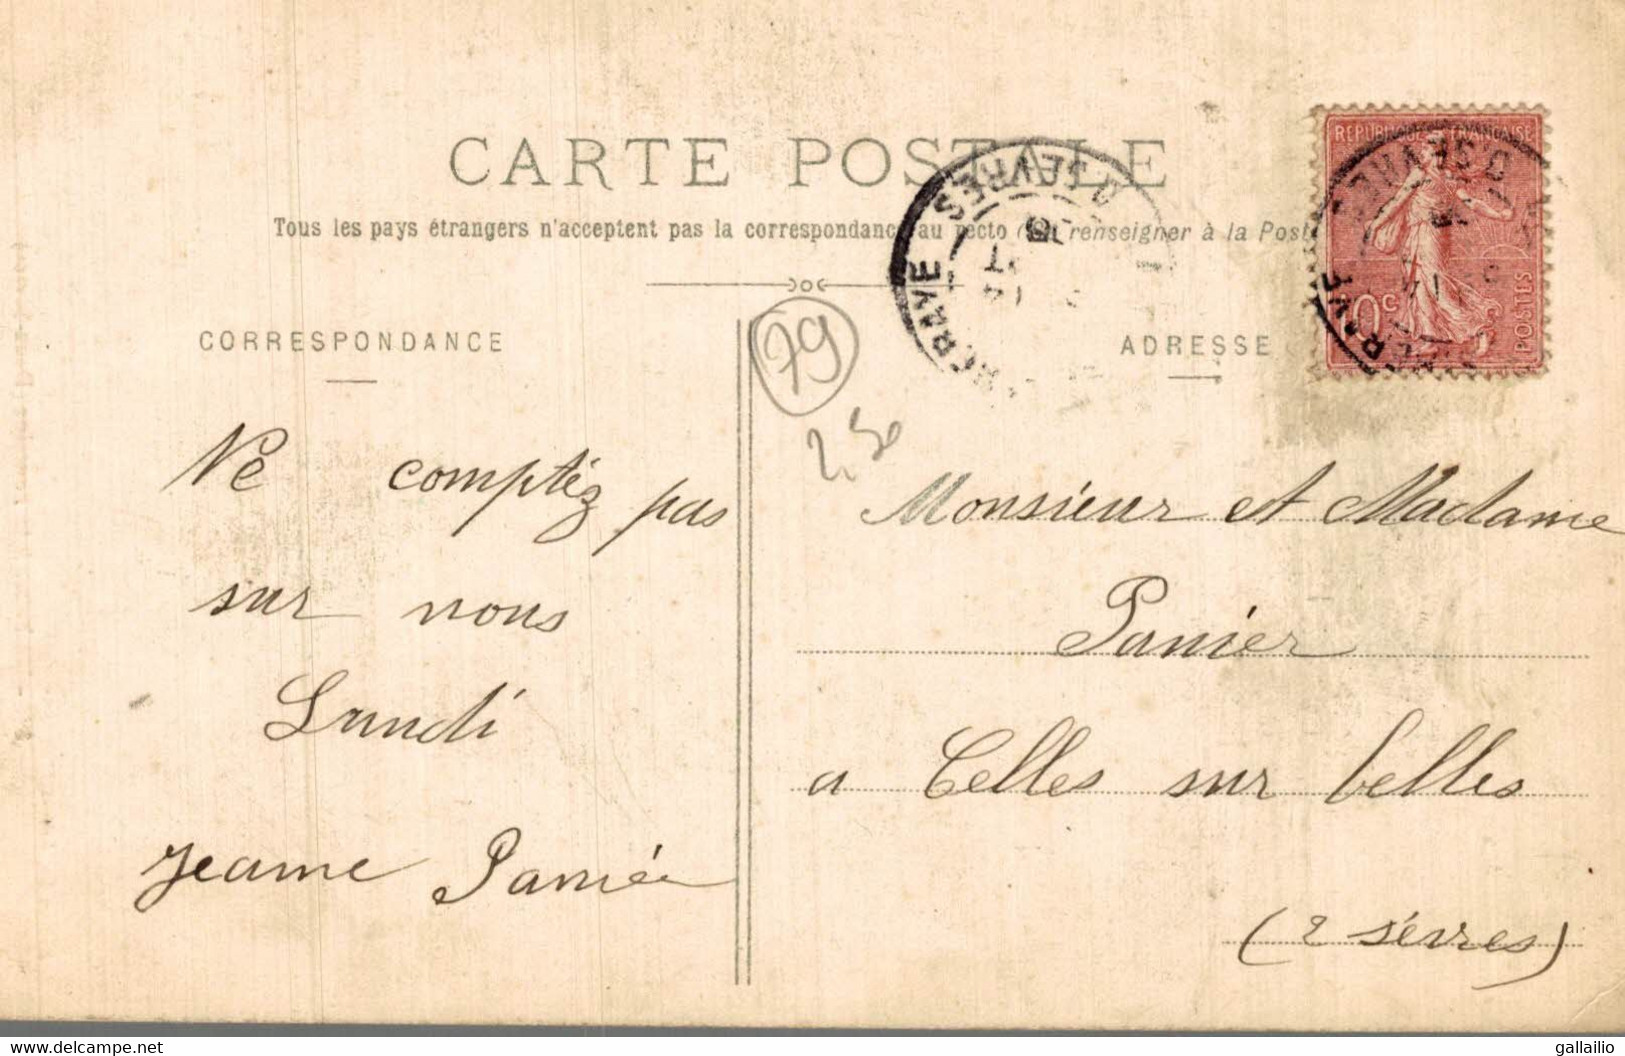 CARTE POSTALE
Tous les pays étrangers n'acceptent pas la correspondance au recto (Se renseigner à la Poste
CORRESPONDANCE
ADRESSE
REPUBLIQUE FRANÇAISE
10c
POSTES
D. SEVRES
79
2,50
Ne comptéz pas
sur nous
Lundi
Jeanne Panier
Monsieur et Madame
Panier
a Celles sur belles
(2 sévres)
www.delcampe.net
gallailio